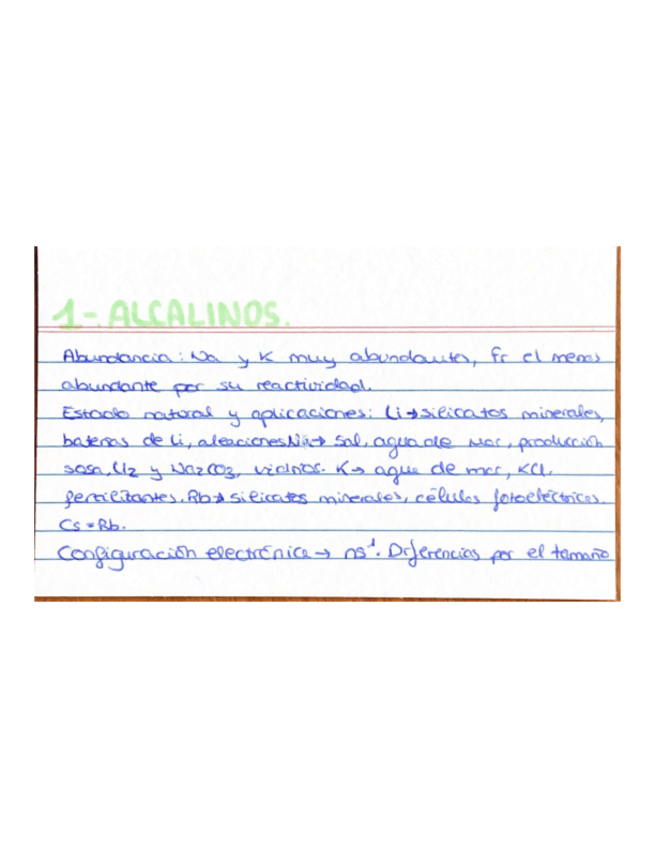 1-ALCALINOS.
Abundancia: Na y K muy abundantes, Fr el menos
abundante por su reactividad.
Estado natural y aplicaciones: Li→silicatos minerales,
baterías de Li, aleaciones. Na→ sal, agua de mar, producción
sosa, Cl2 y Na2CO3, vidrios. K→ agua de mar, KCl,
fertilizantes. Rb→silicatos minerales, células fotoeléctricas.
Cs=Rb.
Configuración electrónica→ ns¹. Diferencias por el tamaño